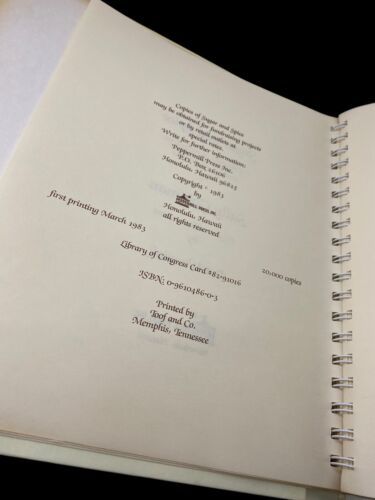 Copies of Sugar and Spice
may be obtained for fundraising projects
or by retail outlets at
special rates.
Write for further information:
Peppermill Press Inc.
P.O. Box 26106
Honolulu, Hawaii 96825
Copyright © 1983
by
MILL PRESS INC.
Honolulu, Hawaii
all rights reserved
first printing March 1983 20,000 copies
Library of Congress Card #82-91016
ISBN: 0-9610486-0-3
Printed by
Toof and Co.
Memphis, Tennessee